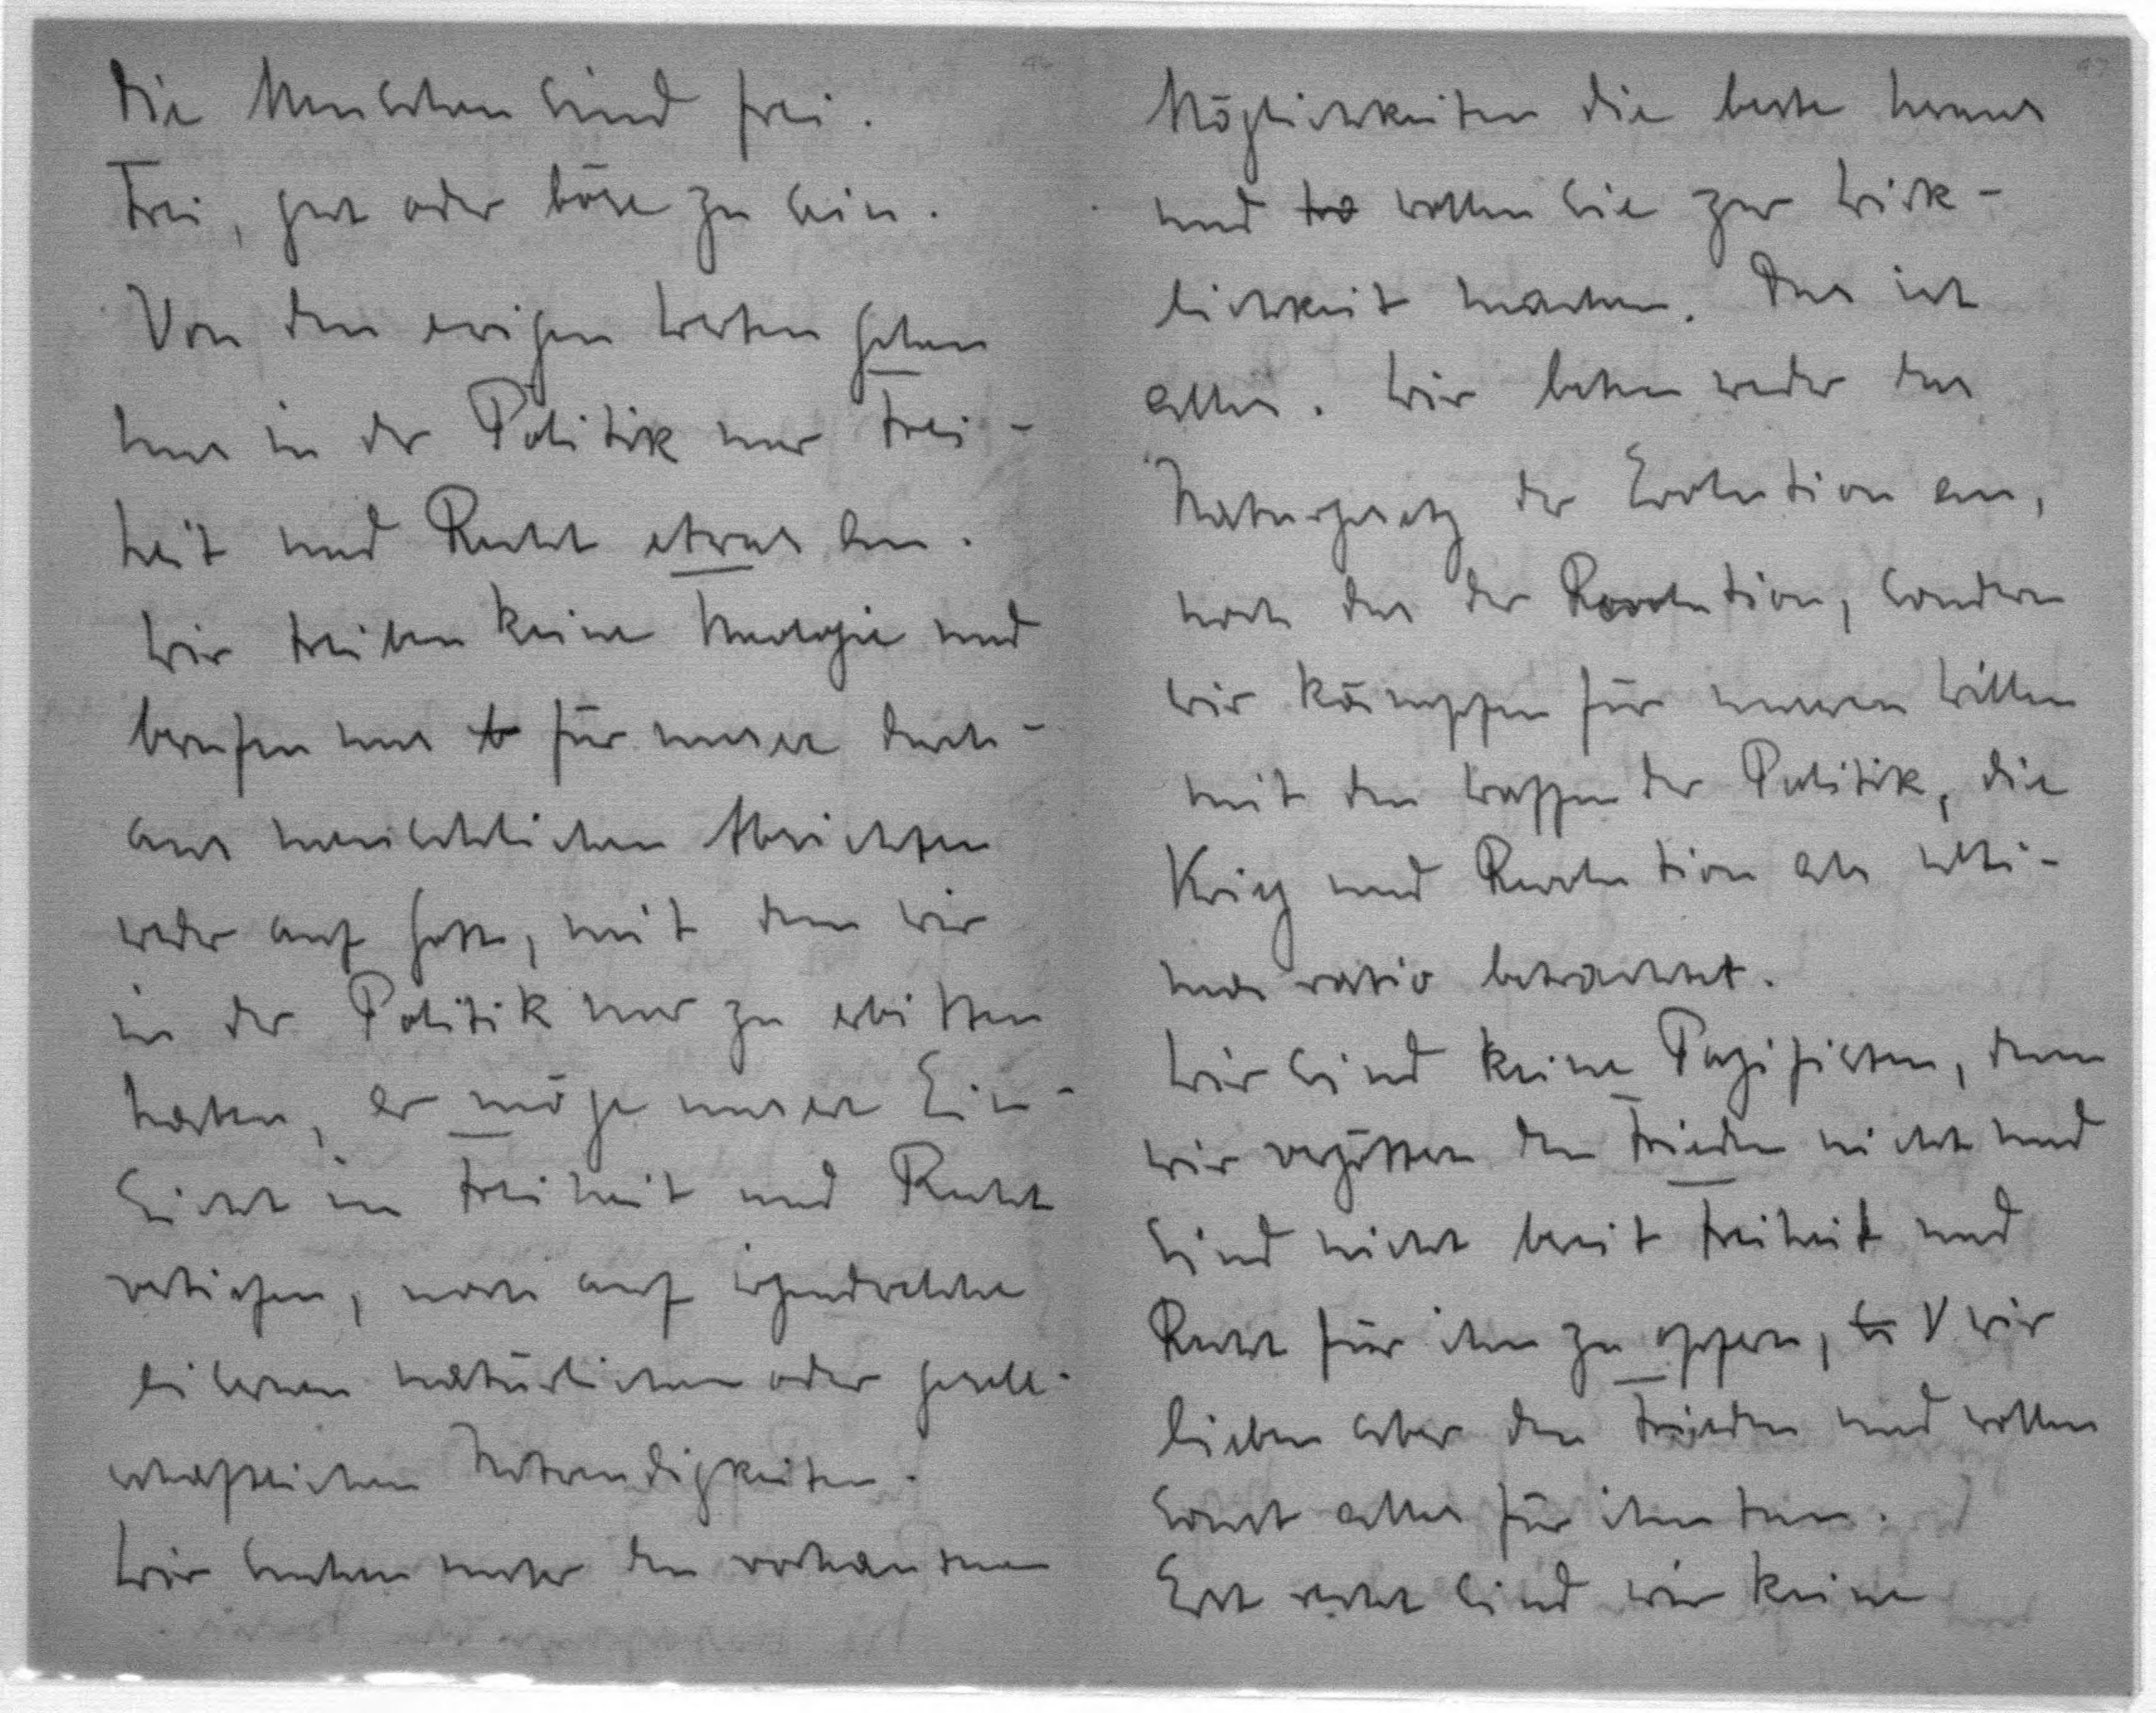 Die Menschen sind frei.
Frei, gut oder böse zu sein.
Von den ewigen Werten gehen
uns in der Politik nur Frei-
heit und Recht etwas an.
Wir treiben keine Theologie und
berufen uns für unsere durch-
aus menschlichen Absichten
weder auf Gott, mit dem wir
in der Politik nur zu erbitten
hätten, er möge unsere Ein-
sicht in Freiheit und Recht
vertiefen, noch auf irgendwelche
eisernen natürlichen oder gesell-
schaftlichen Notwendigkeiten.
Wir suchen unter den vorhandenen
Möglichkeiten die beste heraus
und wollen sie zur Wirk-
lichkeit machen. Das ist
alles. Wir beten weder das
Naturgesetz der Evolution an,
noch das der Revolution, sondern
wir kämpfen für unseren Willen
mit den Waffen der Politik, die
Krieg und Revolution als ulti-
ma ratio betrachtet.
Wir sind keine Pazifisten, denn
wir vergöttern den Frieden nicht und
sind nicht bereit Freiheit und
Recht für ihn zu opfern, wir
lieben aber den Frieden und wollen
sonst alles für ihn tun.
Erst recht sind wir keine